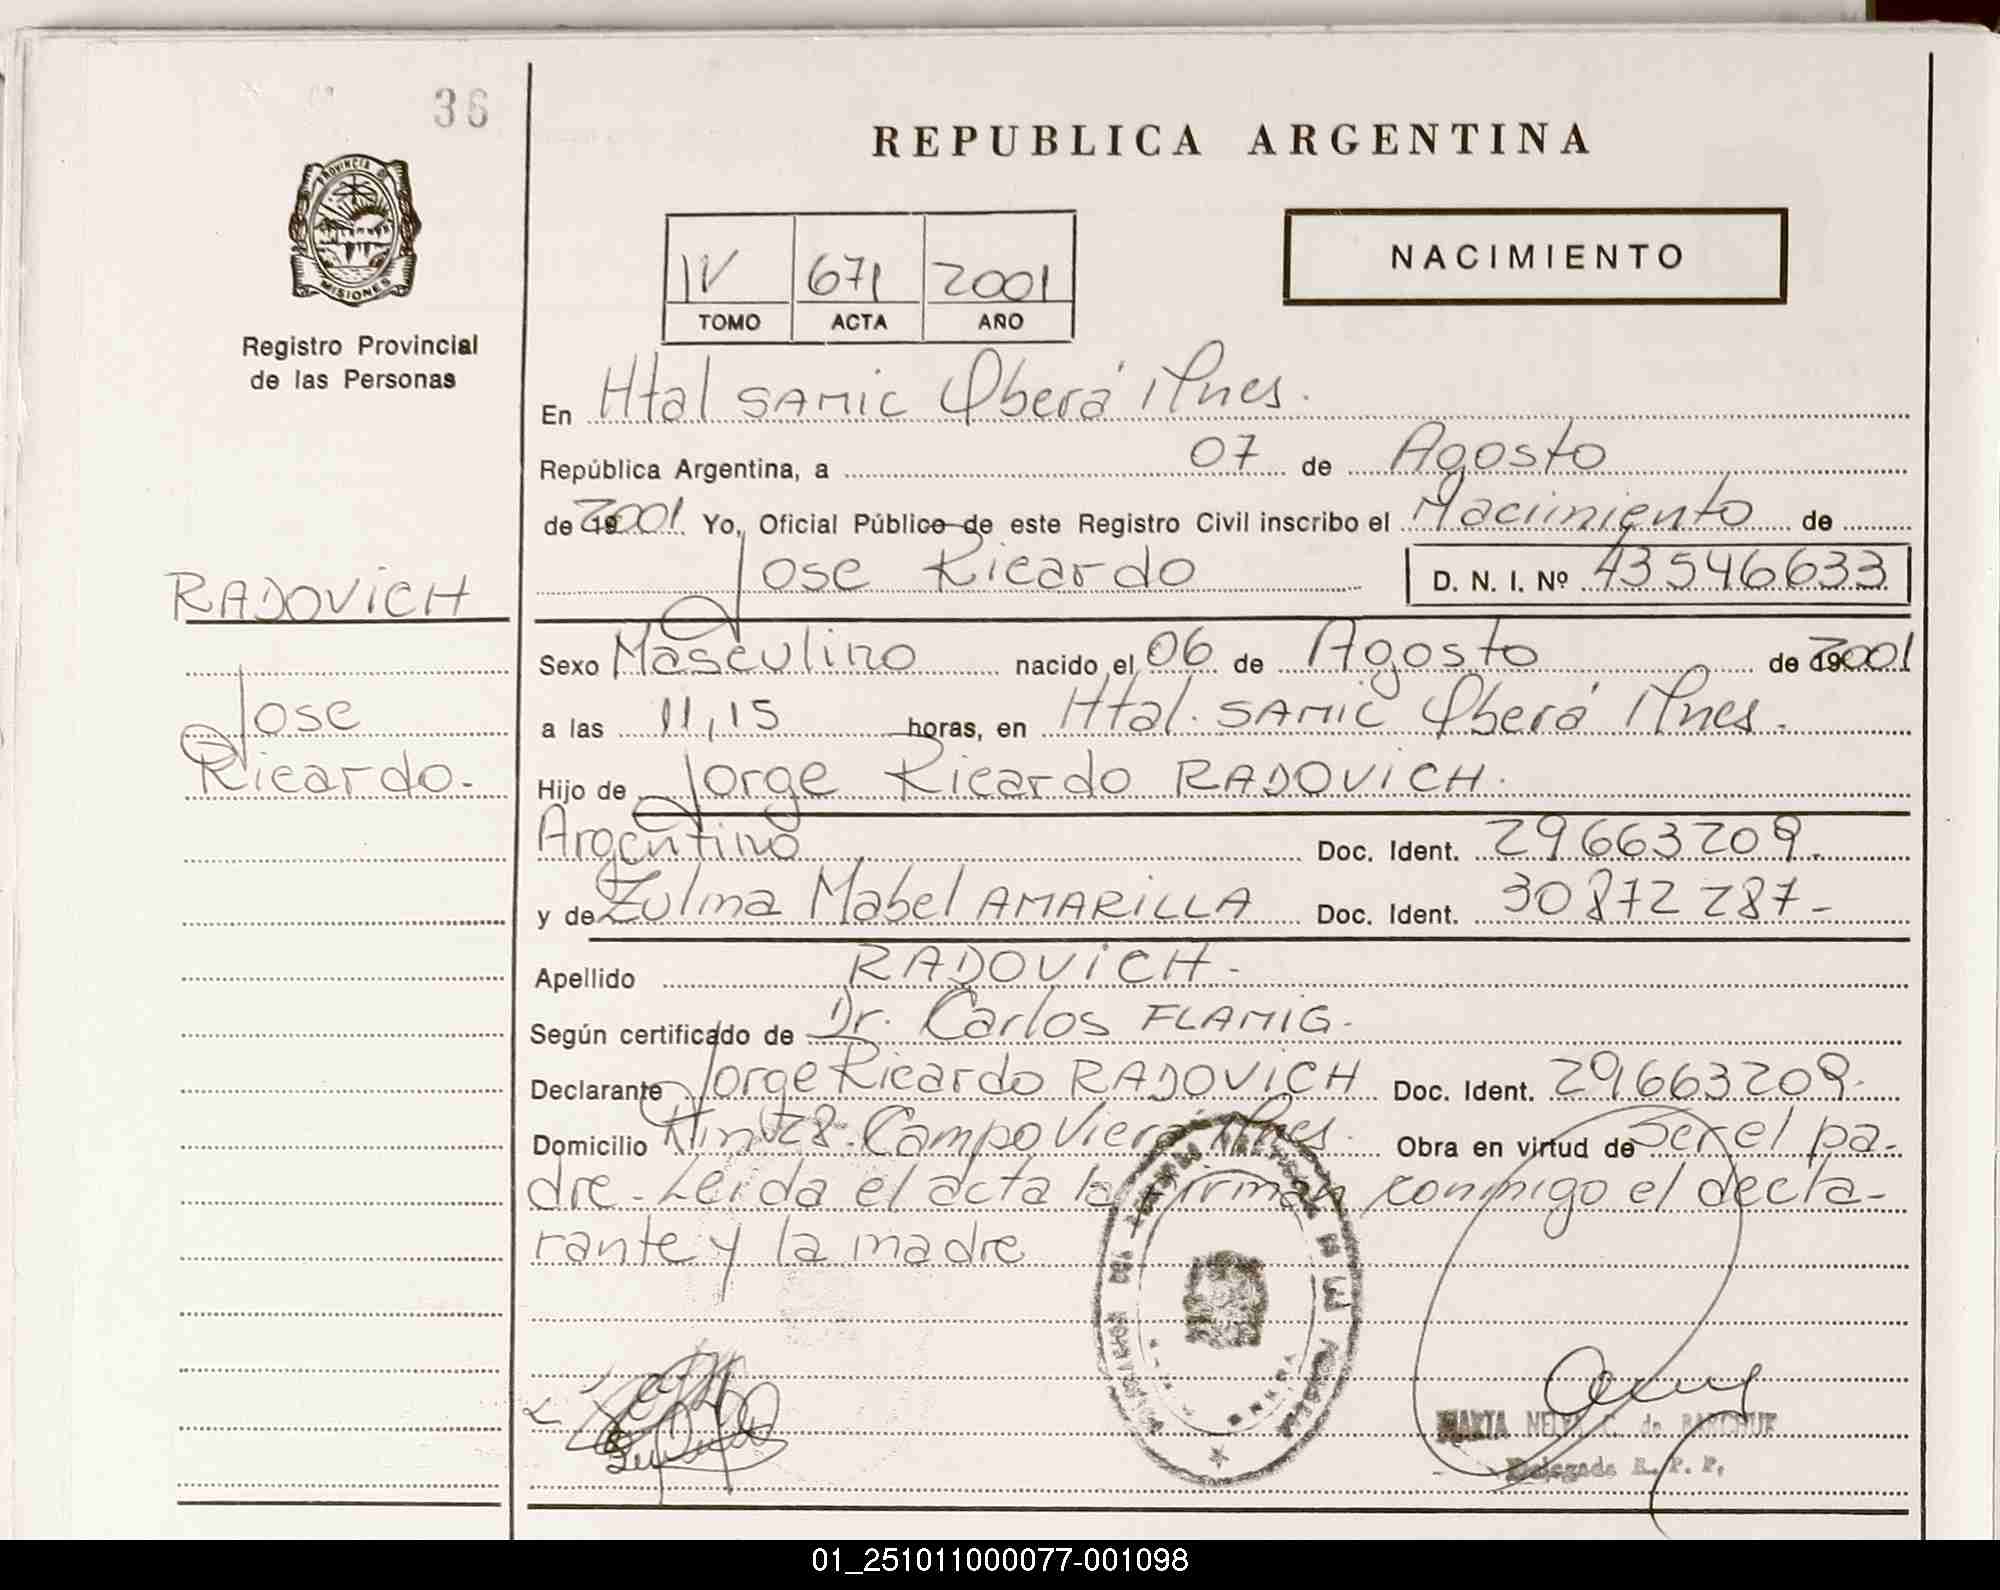 36
REPUBLICA ARGENTINA
PROVINCIA DE
MISIONES
Registro Provincial
de las Personas
IV 671 2001
TOMO ACTA AÑO
NACIMIENTO
En Htal SAMIC Oberá Mnes.
República Argentina, a 07 de Agosto
de 2001 Yo, Oficial Público de este Registro Civil inscribo el Nacimiento de
Jose Ricardo D. N. I. Nº 43546633
RADOVICH
Jose
Ricardo-
Sexo Masculino nacido el 06 de Agosto de 2001
a las 11,15 horas, en Htal. SAMIC Oberá Mnes.
Hijo de Jorge Ricardo RADOVICH.
Argentino Doc. Ident. 29663209.
y de Zulma Mabel AMARILLA Doc. Ident. 30872287-
Apellido RADOVICH-
Según certificado de Dr. Carlos FLAMIG-
Declarante Jorge Ricardo RADOVICH Doc. Ident. 29663209-
Domicilio Campo Viera Mnes. Obra en virtud de Ser el pa-
dre- Leida el acta la firman conmigo el decla-
rante y la madre
de BARCHUK
Delegada R. P. P.
01_251011000077-001098